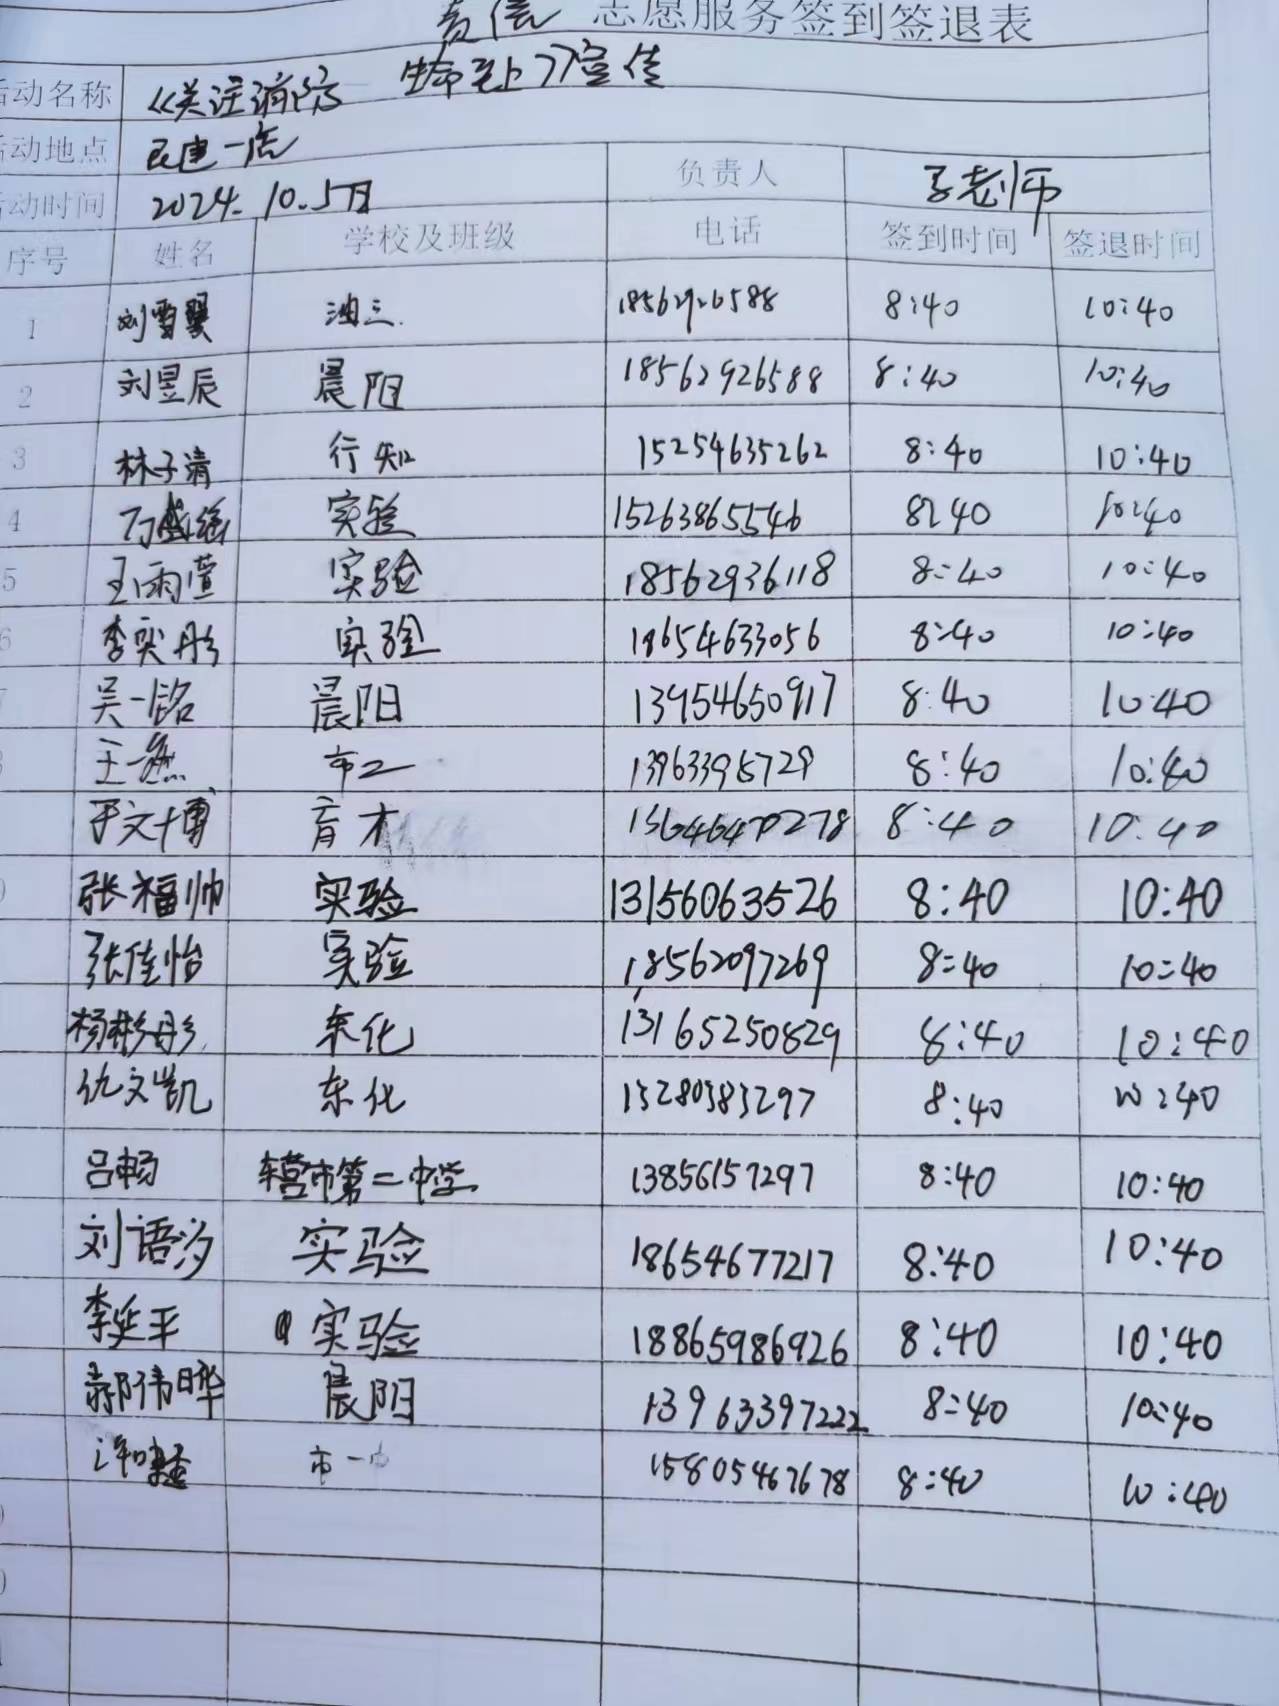 志愿服务签到签退表
活动名称 《关注消防 生命至上》宣传
活动地点 民建一店
活动时间 2024.10.5日 负责人 老师
序号 姓名 学校及班级 电话 签到时间 签退时间
1 刘雪翼 油三. 18562926588 8:40 10:40
2 刘昱辰 晨阳 18562926588 8:40 10:40
3 林子清 行知 15254635262 8:40 10:40
4 实验 15263865546 8:40 10:40
5 王雨萱 实验 18562936118 8:40 10:40
6 李奕彤 实验 18654633056 8:40 10:40
吴一铭 晨阳 13954650917 8:40 10:40
王一 市二 13963395729 8:40 10:40
于文博 育才 8:40 10:40
张福帅 实验 13156063526 8:40 10:40
张佳怡 实验 18562097269 8:40 10:40
杨彬彤 东化 13165250829 8:40 10:40
仇文凯 东化 15280383297 8:40 10:40
吕畅 东营市第二中学 13856157297 8:40 10:40
刘语汐 实验 18654677217 8:40 10:40
李延平 实验 18865986926 8:40 10:40
郝伟晔 晨阳 13963397222 8:40 10:40
市一中 15805467678 8:40 10:40